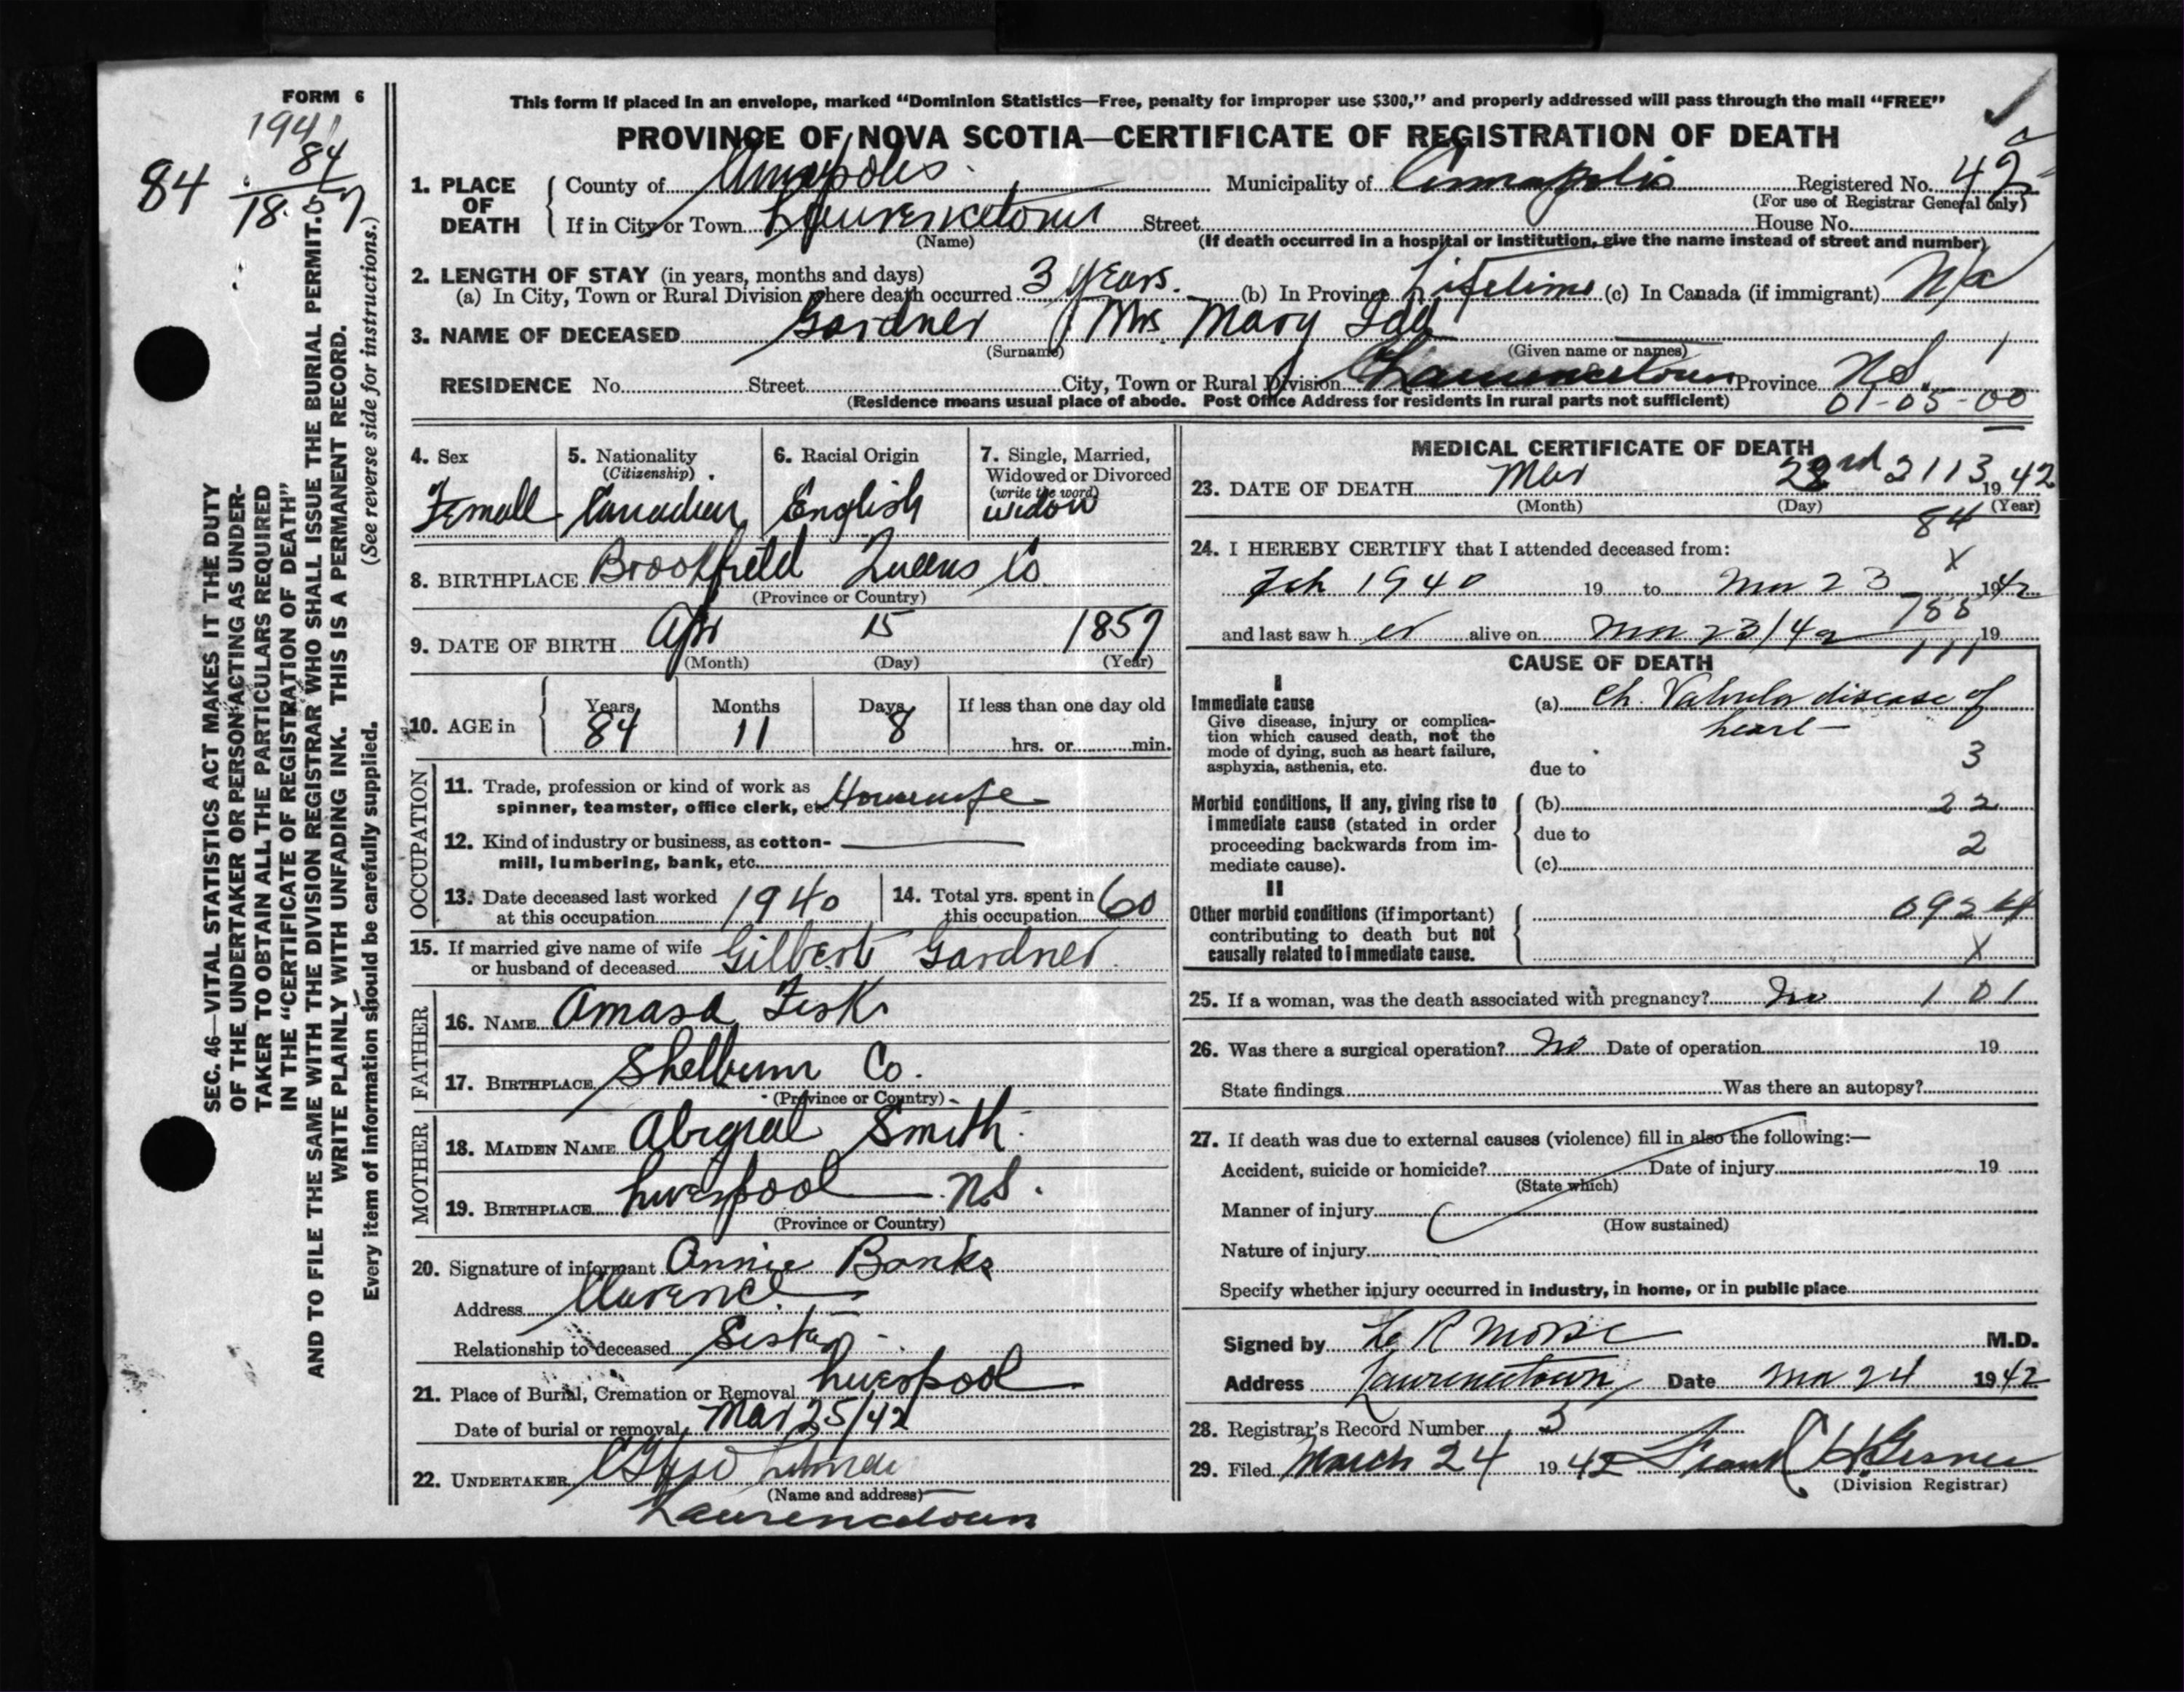 FORM 6
1941
84
84
1857
This form if placed in an envelope, marked "Dominion Statistics—Free, penalty for improper use $300," and properly addressed will pass through the mail "FREE"
PROVINCE OF NOVA SCOTIA—CERTIFICATE OF REGISTRATION OF DEATH
1. PLACE OF DEATH County of Annapolis Municipality of Annapolis Registered No. 42
(For use of Registrar General only)
If in City or Town Lawrencetown Street House No.
(Name) (If death occurred in a hospital or institution, give the name instead of street and number)
2. LENGTH OF STAY (in years, months and days)
(a) In City, Town or Rural Division where death occurred 3 years. (b) In Province Lifetime (c) In Canada (if immigrant) N/a
3. NAME OF DECEASED Gardner Mrs Mary
(Surname) (Given name or names)
RESIDENCE No. Street City, Town or Rural Division Lawrencetown Province N.S. 1
(Residence means usual place of abode. Post Office Address for residents in rural parts not sufficient) 01-05-00
4. Sex Female
5. Nationality (Citizenship) Canadian
6. Racial Origin English
7. Single, Married, Widowed or Divorced (write the word) widow
8. BIRTHPLACE Brookfield Queens Co
(Province or Country)
9. DATE OF BIRTH Apr 15 1857
(Month) (Day) (Year)
10. AGE in Years 84 Months 11 Days 8 If less than one day old
hrs. or min.
OCCUPATION
11. Trade, profession or kind of work as
spinner, teamster, office clerk, etc. Housewife
12. Kind of industry or business, as cotton-
mill, lumbering, bank, etc.
13. Date deceased last worked at this occupation 1940
14. Total yrs. spent in this occupation 60
15. If married give name of wife
or husband of deceased Gilbert Gardner
FATHER
16. NAME Amasa
17. BIRTHPLACE Shelburn Co.
(Province or Country)
MOTHER
18. MAIDEN NAME Abigial Smith
19. BIRTHPLACE Liverpool NS.
(Province or Country)
20. Signature of informant Annie Banks
Address Clarence
Relationship to deceased Sister
21. Place of Burial, Cremation or Removal Liverpool
Date of burial or removal Mar 25/42
22. UNDERTAKER
(Name and address)
Lawrencetown
MEDICAL CERTIFICATE OF DEATH
23. DATE OF DEATH Mar 23rd 2113 1942
(Month) (Day) (Year)
84
24. I HEREBY CERTIFY that I attended deceased from:
X
Feb 1940 19 to Mar 23 1942
788
and last saw her alive on Mar 23/42 19
111
CAUSE OF DEATH
I
Immediate cause
Give disease, injury or complica-
tion which caused death, not the
mode of dying, such as heart failure,
asphyxia, asthenia, etc.
(a) Ch. Valvular disease of
heart—
due to 3
Morbid conditions, if any, giving rise to
immediate cause (stated in order
proceeding backwards from im-
mediate cause).
(b) 22
due to 2
(c)
II
Other morbid conditions (if important)
contributing to death but not
causally related to immediate cause.
X
25. If a woman, was the death associated with pregnancy? No 101
26. Was there a surgical operation? No Date of operation 19
State findings Was there an autopsy?
27. If death was due to external causes (violence) fill in also the following:—
Accident, suicide or homicide? Date of injury 19
(State which)
Manner of injury
(How sustained)
Nature of injury
Specify whether injury occurred in industry, in home, or in public place
Signed by R Morse M.D.
Address Lawrencetown Date Mar 24 1942
28. Registrar's Record Number 5
29. Filed March 24 1942 Frank H
(Division Registrar)
SEC. 46—VITAL STATISTICS ACT MAKES IT THE DUTY
OF THE UNDERTAKER OR PERSON ACTING AS UNDER-
TAKER TO OBTAIN ALL THE PARTICULARS REQUIRED
IN THE "CERTIFICATE OF REGISTRATION OF DEATH"
AND TO FILE THE SAME WITH THE DIVISION REGISTRAR WHO SHALL ISSUE THE BURIAL PERMIT.
WRITE PLAINLY WITH UNFADING INK. THIS IS A PERMANENT RECORD.
Every item of information should be carefully supplied. (See reverse side for instructions.)